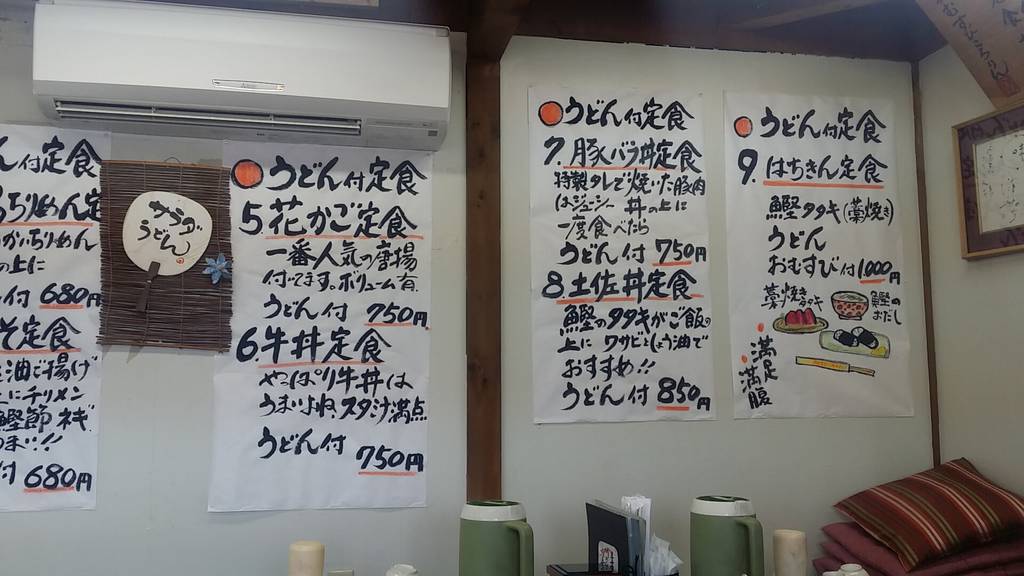 ん付定食
ちりめん定
がいちりめん
の上に
付 680円
そ定食
油ご揚げ
にチリメン
鰹節 ネギ
うまい!!
付 680円
サラダ
うどん
うどん付定食
5.花かご定食
一番人気の唐揚
付てます。ボリューム有.
うどん付 750円
6.牛丼定食
やっぱり牛丼は
うまいよね スタミナ満点
うどん付
750円
うどん付定食
7.豚バラ丼定食
特製タレで焼いた豚肉
はジューシー 丼の上に
一度食べたら
うどん付 750円
8.土佐丼定食
鰹のタタキがご飯の
上に ワサビしょう油で
おすすめ!!
うどん付 850円
うどん付定食
9.はちきん定食
鰹タタキ(藁焼き)
うどん
おむすび付1000円
藁焼きタタキ
鰹の
おだし
満足
満腹